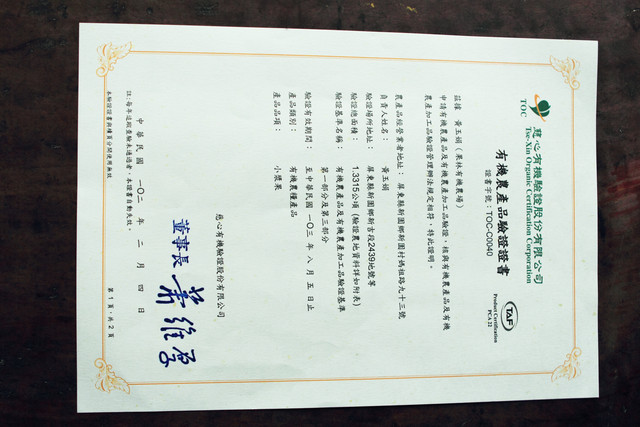 TOC
慈心有機驗證股份有限公司
Tse-Xin Organic Certification Corporation
有機農產品驗證證書
證書字號：TOC-C0040
TAF
Product Certification
PCA 22
茲據　黃玉娟（果林有機農場）
申請有機農產品及有機農產加工品驗證，核與有機農產品及有機
農產加工品驗證管理辦法規定相符，特此證明。
農產品經營業者地址：屏東縣新園鄉新園村媽祖路九十三號
負責人姓名：黃玉娟
驗證場所地址：屏東縣新園鄉新吉段2439地號等
驗證總面積：1.3315公頃（驗證農地資料詳如附表）
驗證基準名稱：有機農產品及有機農產加工品驗證基準
第一部分及第三部分
驗證有效期間：至中華民國一〇三年八月五日止
產品類別：有機農糧產品
產品品項：小漿果
慈心有機驗證股份有限公司
董事長
中華民國一〇二年二月四日
註：每年追蹤查驗未通過者，本證書自動失效。
本驗證證書與標章分開使用無效
第1頁，共2頁